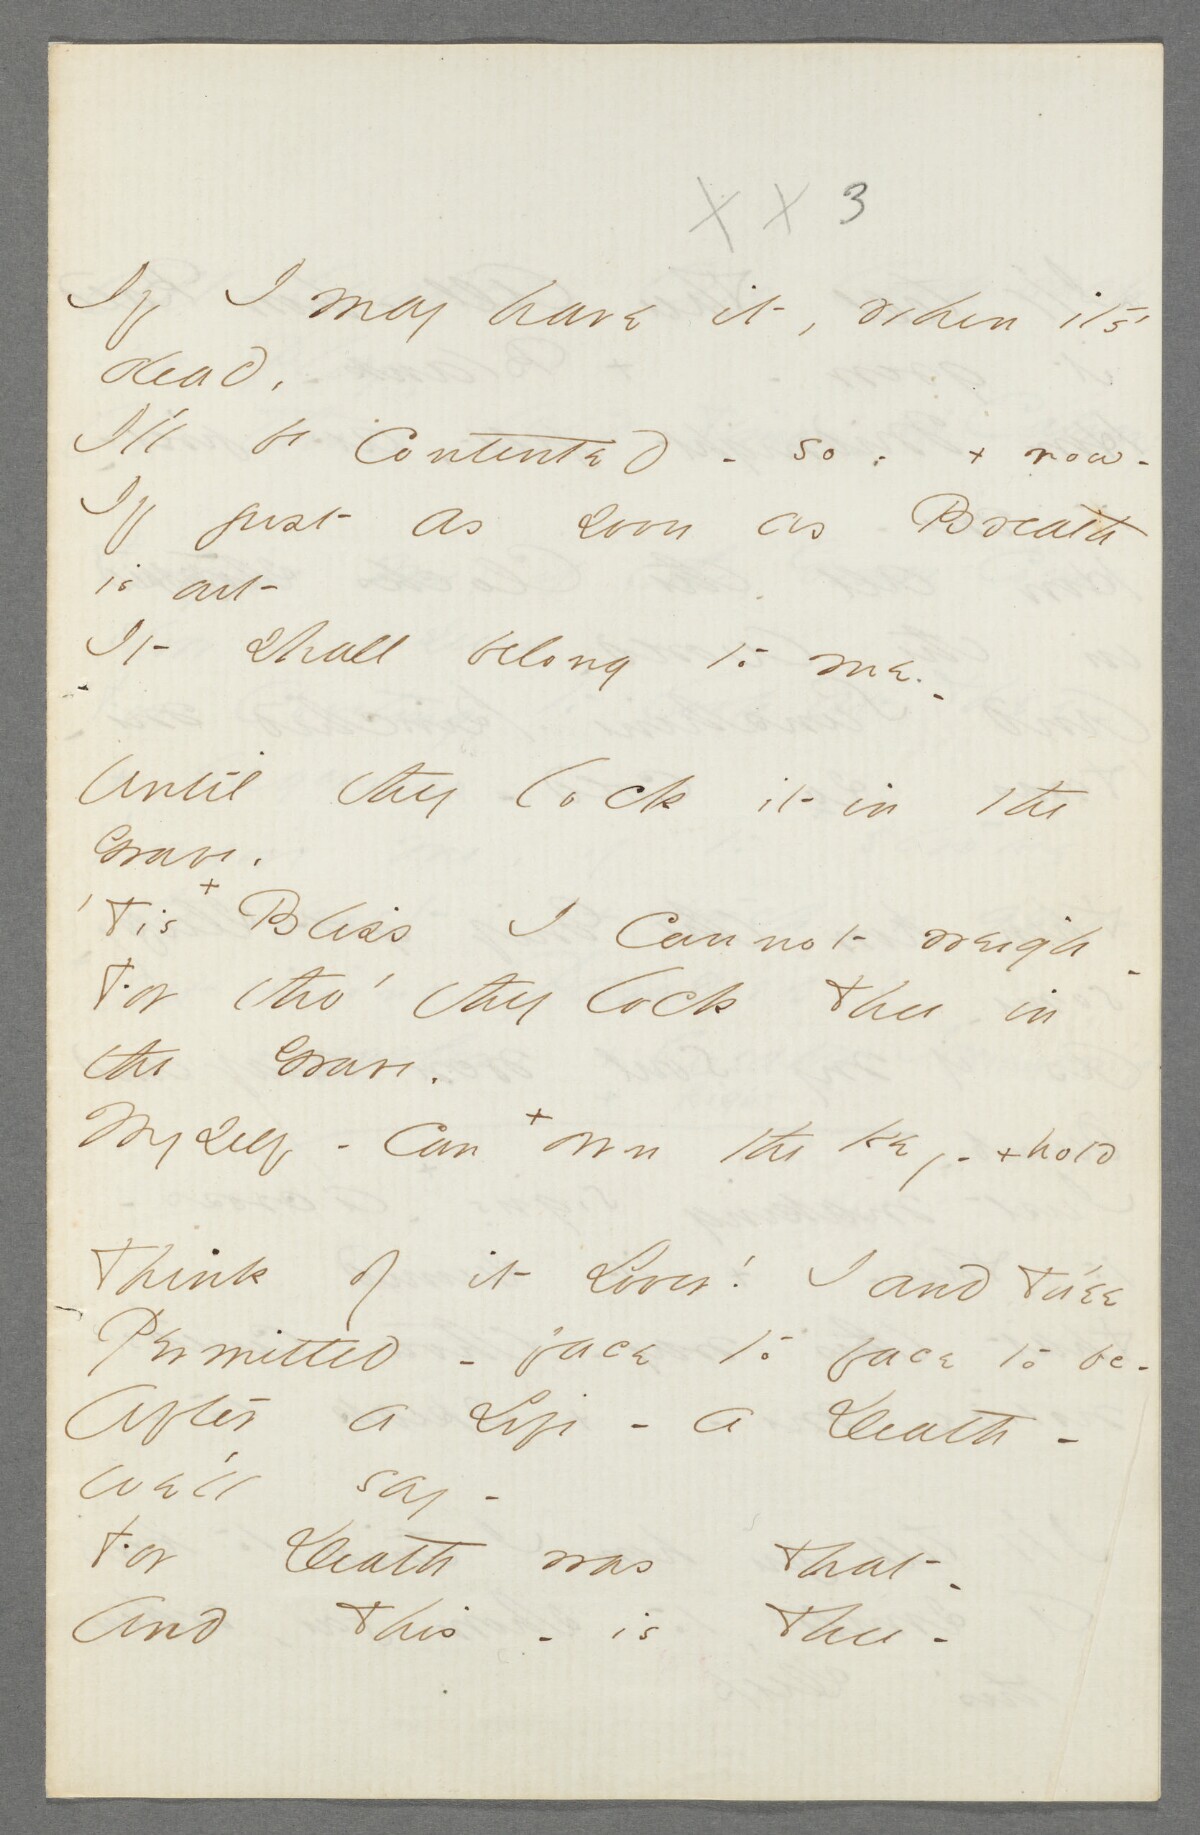 X X 3
If I may have it, when it's
dead,
I'll be Contented - so - + now -
If just as soon as Breath
is out -
It shall belong to me -
Until they lock it in the
Grave,
'Tis + Bliss I Cannot weigh -
For tho' they lock Thee in
the Grave,
Myself - Can + own the key - + hold
Think of it Lover! I and Thee
Permitted - face to face to be -
After a Life - a Death -
we'll say -
For Death was That -
And This - is Thee -